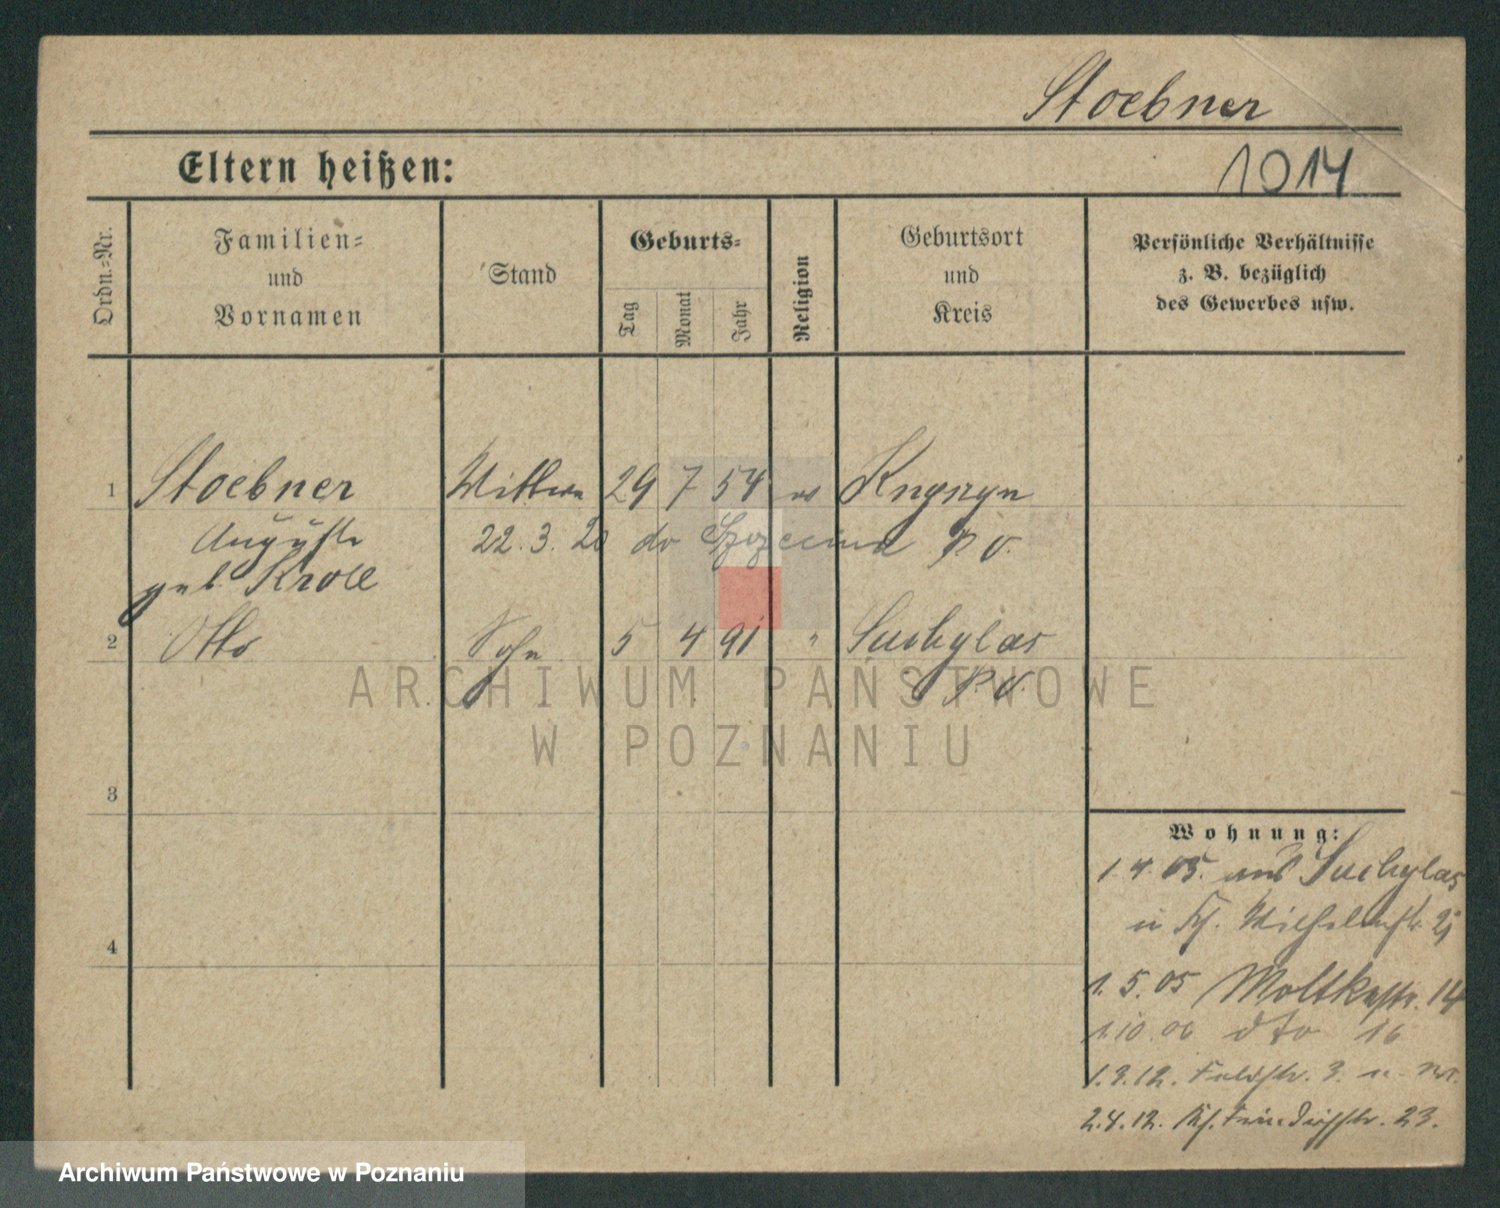 Stoebner
Eltern heißen:
1014
Ordn.-Nr.
Familien-
und
Vornamen
Stand
Geburts-
Tag
Monat
Jahr
Religion
Geburtsort
und
Kreis
Persönliche Verhältnisse
z. B. bezüglich
des Gewerbes usw.
1 Stoebner Wittwe 29 7 54
Auguste 22.3.20 do P. O.
geb. Kroll
2 Otto Sohn 5 4 91 " Suchylas
P. O.
3
4
Wohnung:
1.4.05. aus Suchylas
1.5.05 Moltkestr. 14
1.10.06 dto 16
1.3.12. Feldstr. 3.
2.4.12. 23.
ARCHIWUM PAŃSTWOWE
W POZNANIU
Archiwum Państwowe w Poznaniu